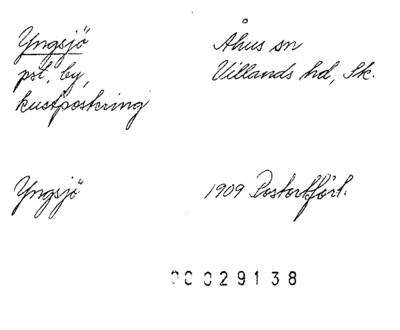 Yngsjö Åhus sn
pst, by, Villands hd, Sk.
kustposkring
Yngsjö 1909 Postortfört.
00029138